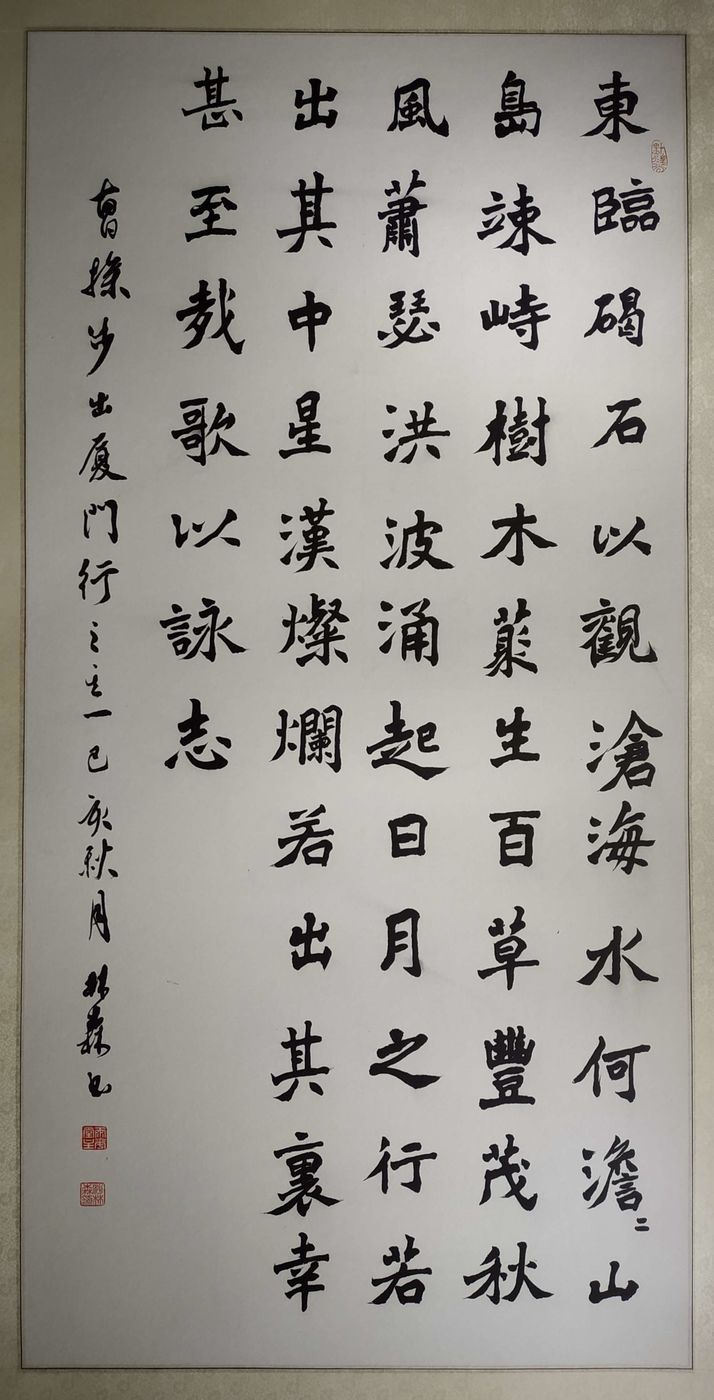 東臨碣石以觀滄海水何澹〻山
島竦峙樹木叢生百草豐茂秋
風蕭瑟洪波涌起日月之行若
出其中星漢燦爛若出其裏幸
甚至哉歌以詠志
曹操步出廈門行之一己亥秋月林森書